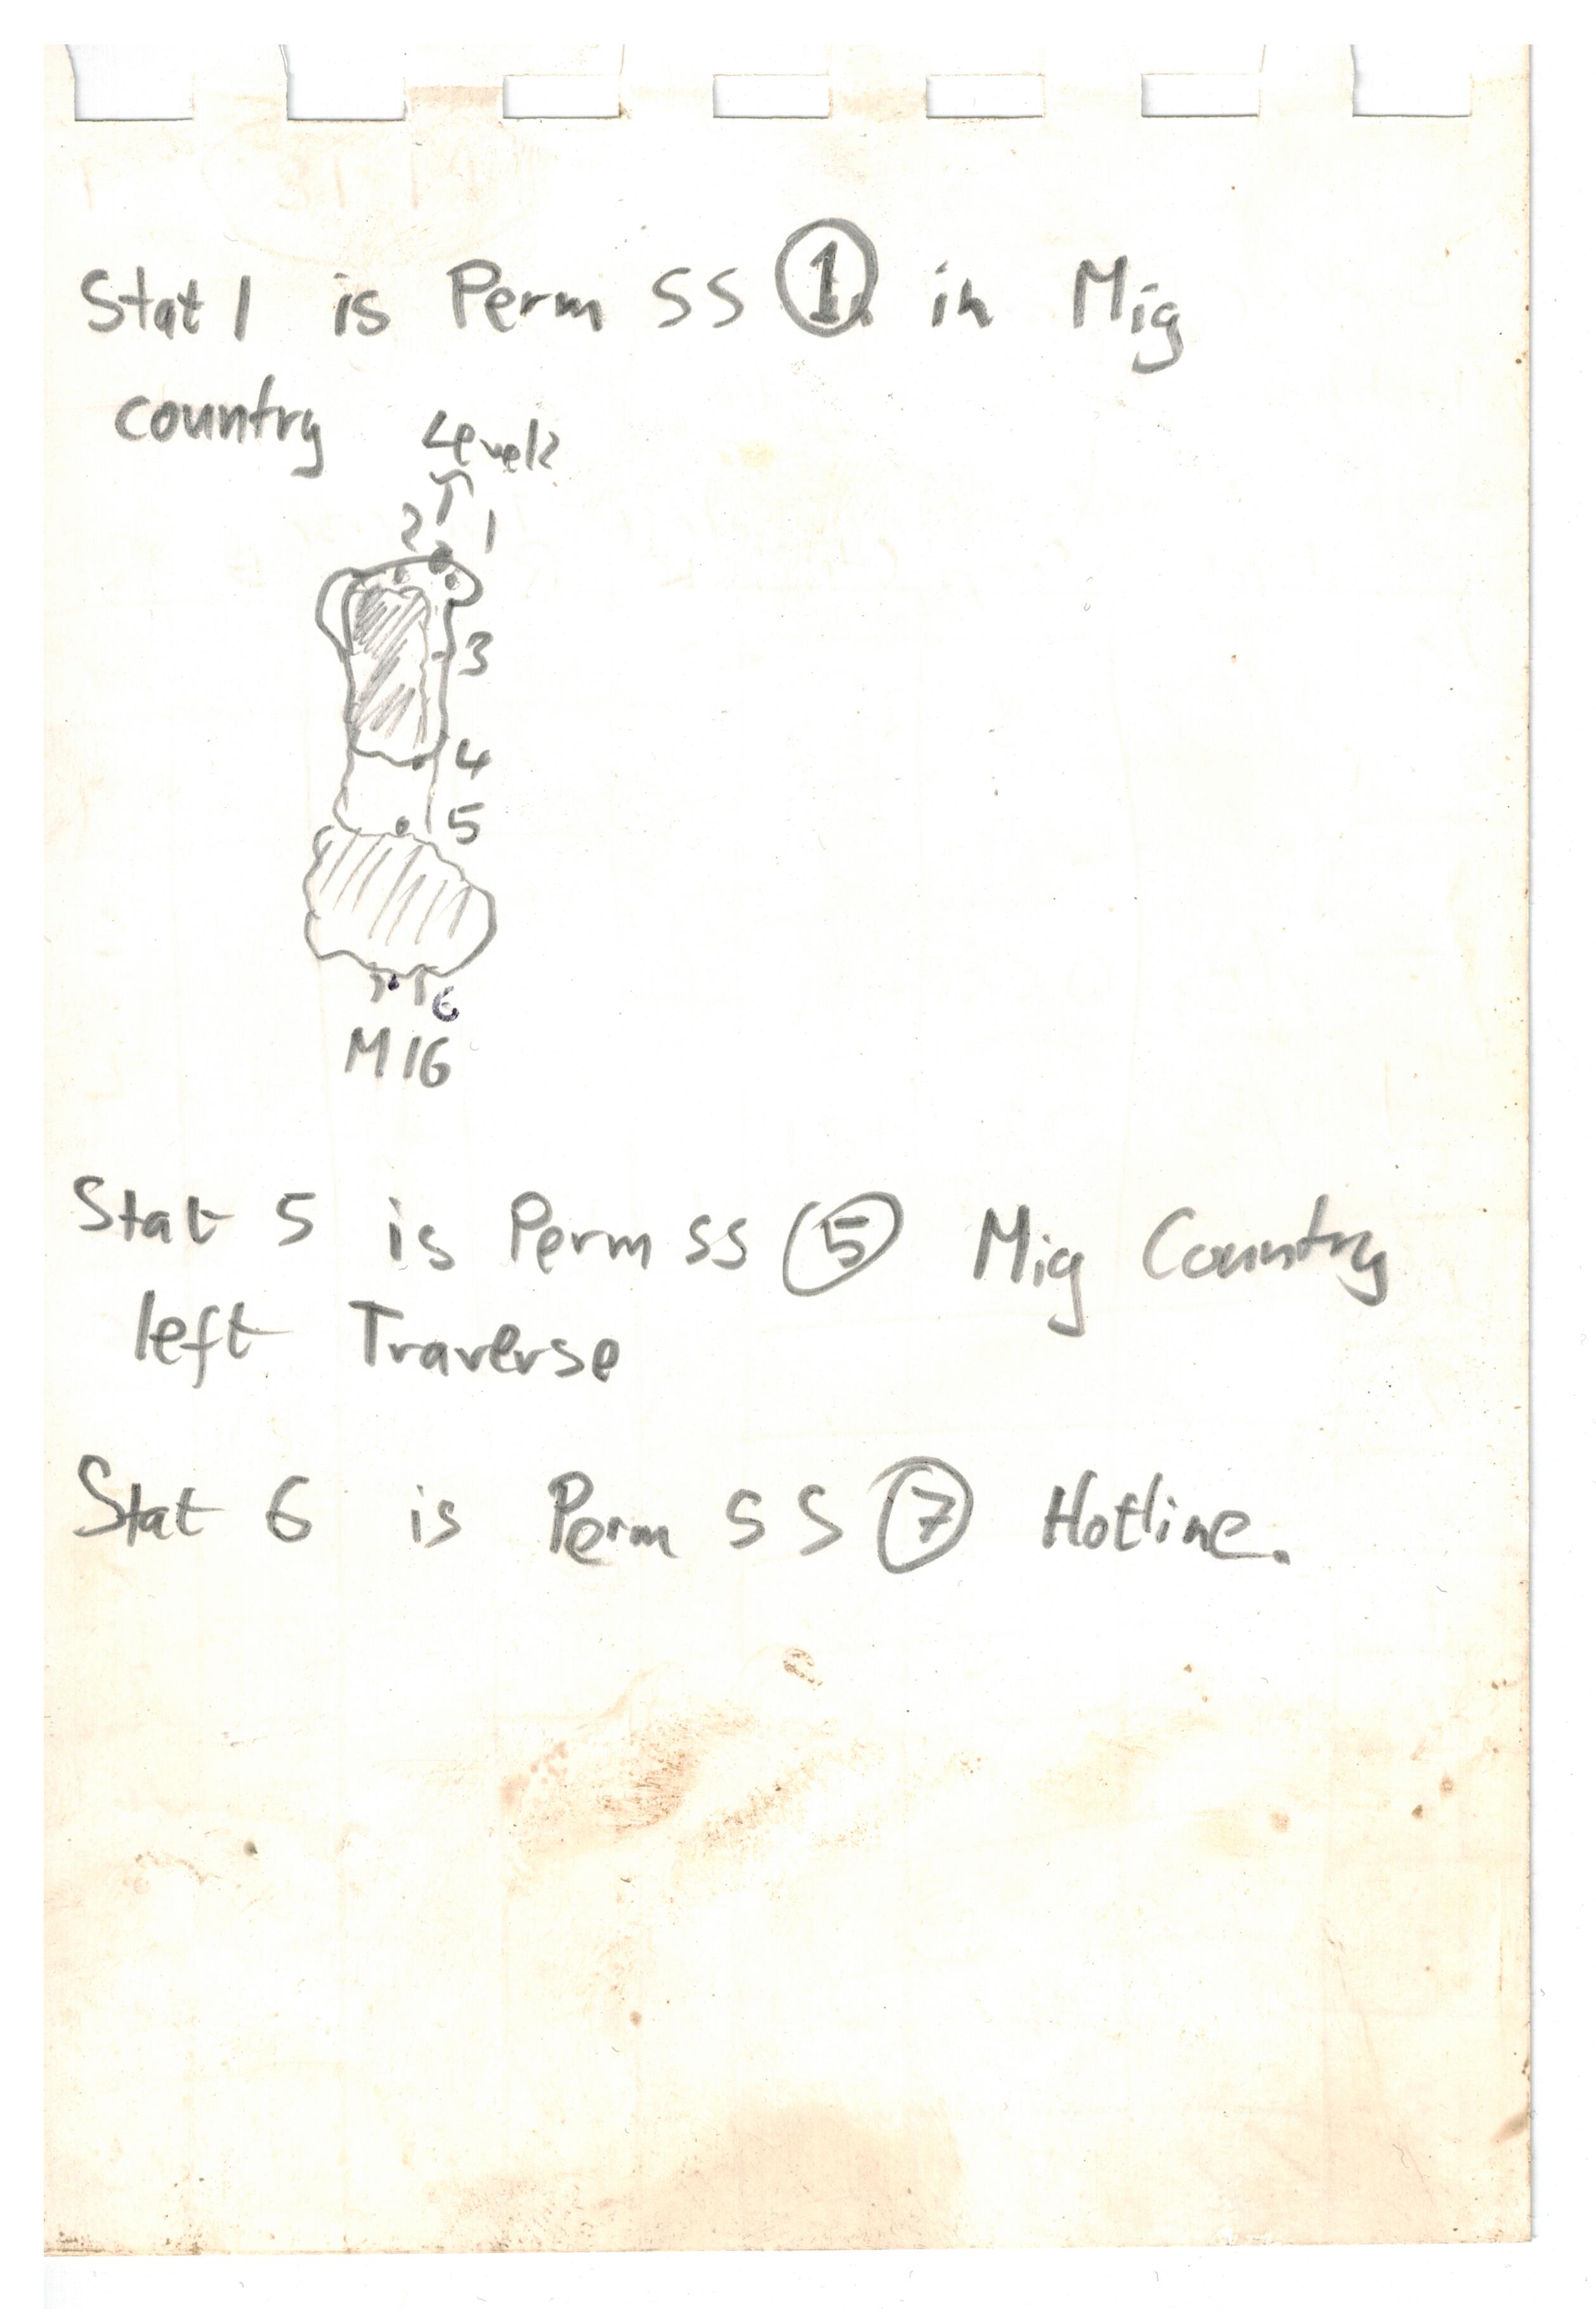 Stat 1 is Perm SS ① in Mig
country
Level2
2 1
3
4
5
6
M16
Stat 5 is Perm SS ⑤ Mig Country
left Traverse
Stat 6 is Perm SS ⑦ Hotline.